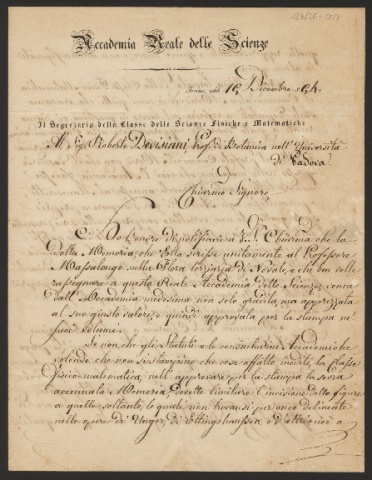 Accademia Reale delle Scienze
Torino addì 12 Dicembre 1854.
Il Segretario della Classe delle Scienze Fisiche e Matematiche
Al Sig. Roberto Devisiani, Prof. di Botanica nell'Università
di Padova
Chiarmo Signore,
Ho l'onore di notificare a S. S. Chiarma che la
dotta Memoria, che Ella scrisse unitamente al Professore
Massalongo sulla Flora terziaria di Novale, e che ben volle
rassegnare a questa Reale Accademia delle Scienze, venne
dall'Accademia medesima non solo gradita, ma apprezzata
al suo giusto valore, e quindi approvata per la stampa ne'
suoi volumi.
Se non che gli Statuti e le consuetudini Accademiche
volendo che non si stampino che cose affatto inedite, la Classe
Fisico-matematica, nell'approvare per la stampa la sovra
accennata Memoria, dovette limitare l'inserzione delle figure
a quelle soltanto, le quali non trovansi per anco delineate
nelle opere di Unger, di Ettingshaussen o d'altri; ove a